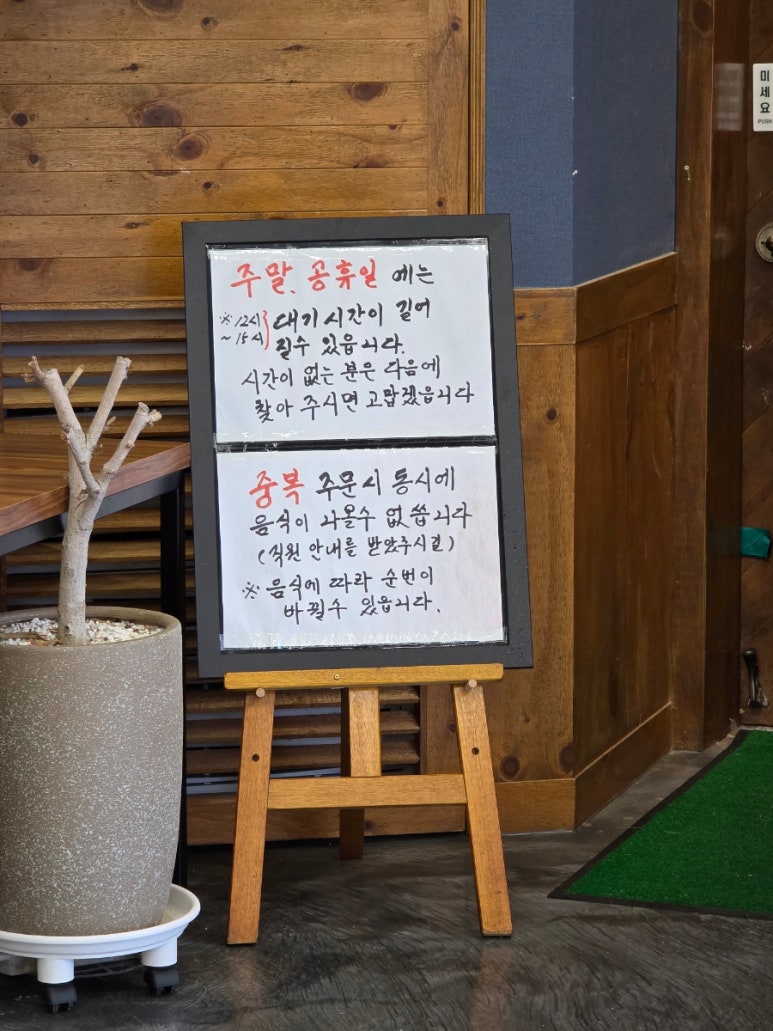 주말. 공휴일 에는
※ 12시 ~ 15시 대기시간이 길어
질수 있읍니다.
시간이 없는 분은 다음에
찾아 주시면 고맙겠읍니다
중복 주문시 동시에
음식이 나올수 없씁니다
(직원 안내를 받았주시길)
※ 음식에 따라 순번이
바뀔수 있읍니다.
미세요
PUSH